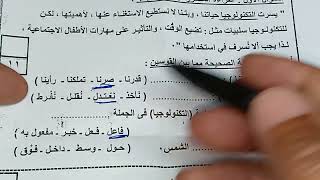 " يسرت التكنولوجيا حياتنا، وبتنا لا نستطيع الاستغناء عنها، لأهميتها، لكن
للتكنولوجيا سلبيات مثل: تضيع الوقت، والتأثير على مهارات الأطفال الاجتماعية ،
لذا يجب ألا نُسرف في استخدامها ".
الصحيحة مما بين القوسين :
( قدرنا - صرنا - تملكنا - رأينا )
( نأخذ - نعتدل - نُقلل - نُفرط )
(التكنولوجيا) في الجملة
( فاعل - فعل - خبر - مفعول به )
الشمس. ( حول - وسط - داخل - فوق )
١١